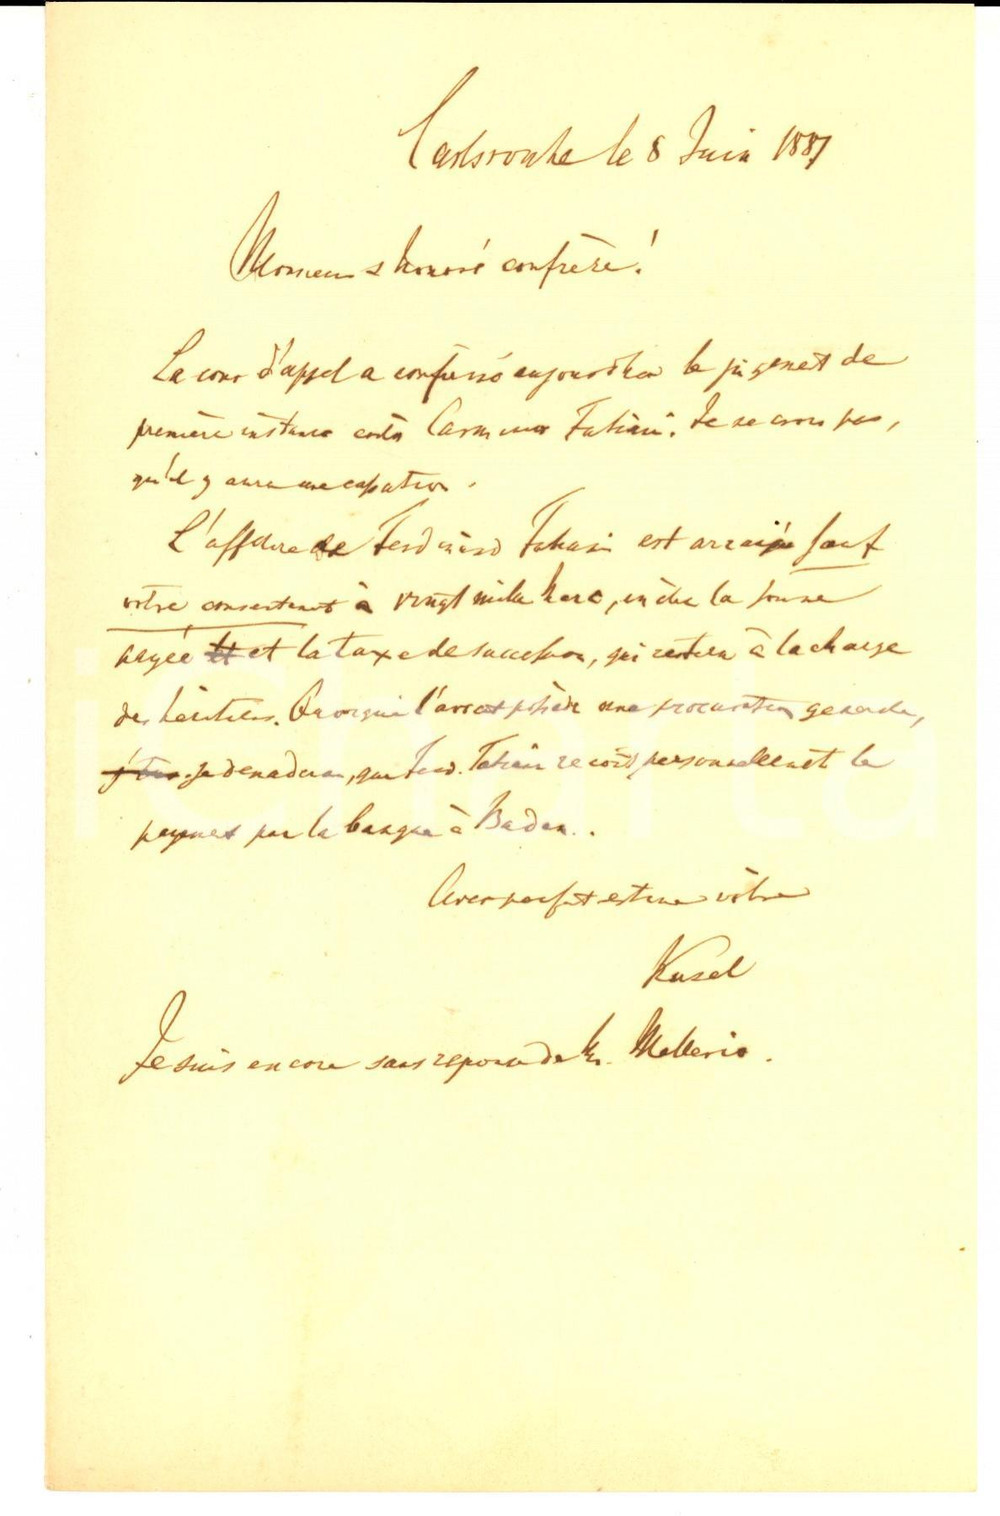 Carlsrouhe le 8 Juin 1887
Monsieur & honoré confrère!
La cour d'appel a confirmé aujourdhui le jugement de
première instance Tahien. Je ne crois pas,
qu'il y aura une cassation.
L'affaire de Ferdinand Tahien est arrangée sauf
votre consentement à vingt mille Marc, la somme
payée et la taxe de succession, qui restera à la charge
des héritiers. Quoique l'avocat possède une procuration generale,
je demanderai, que Ferd. Tahien reçoit personnellement le
payement par la banque à Baden.
Avec parfait estime vôtre
Kusel
Je suis encore sans reponse de Mr. Mellerio.